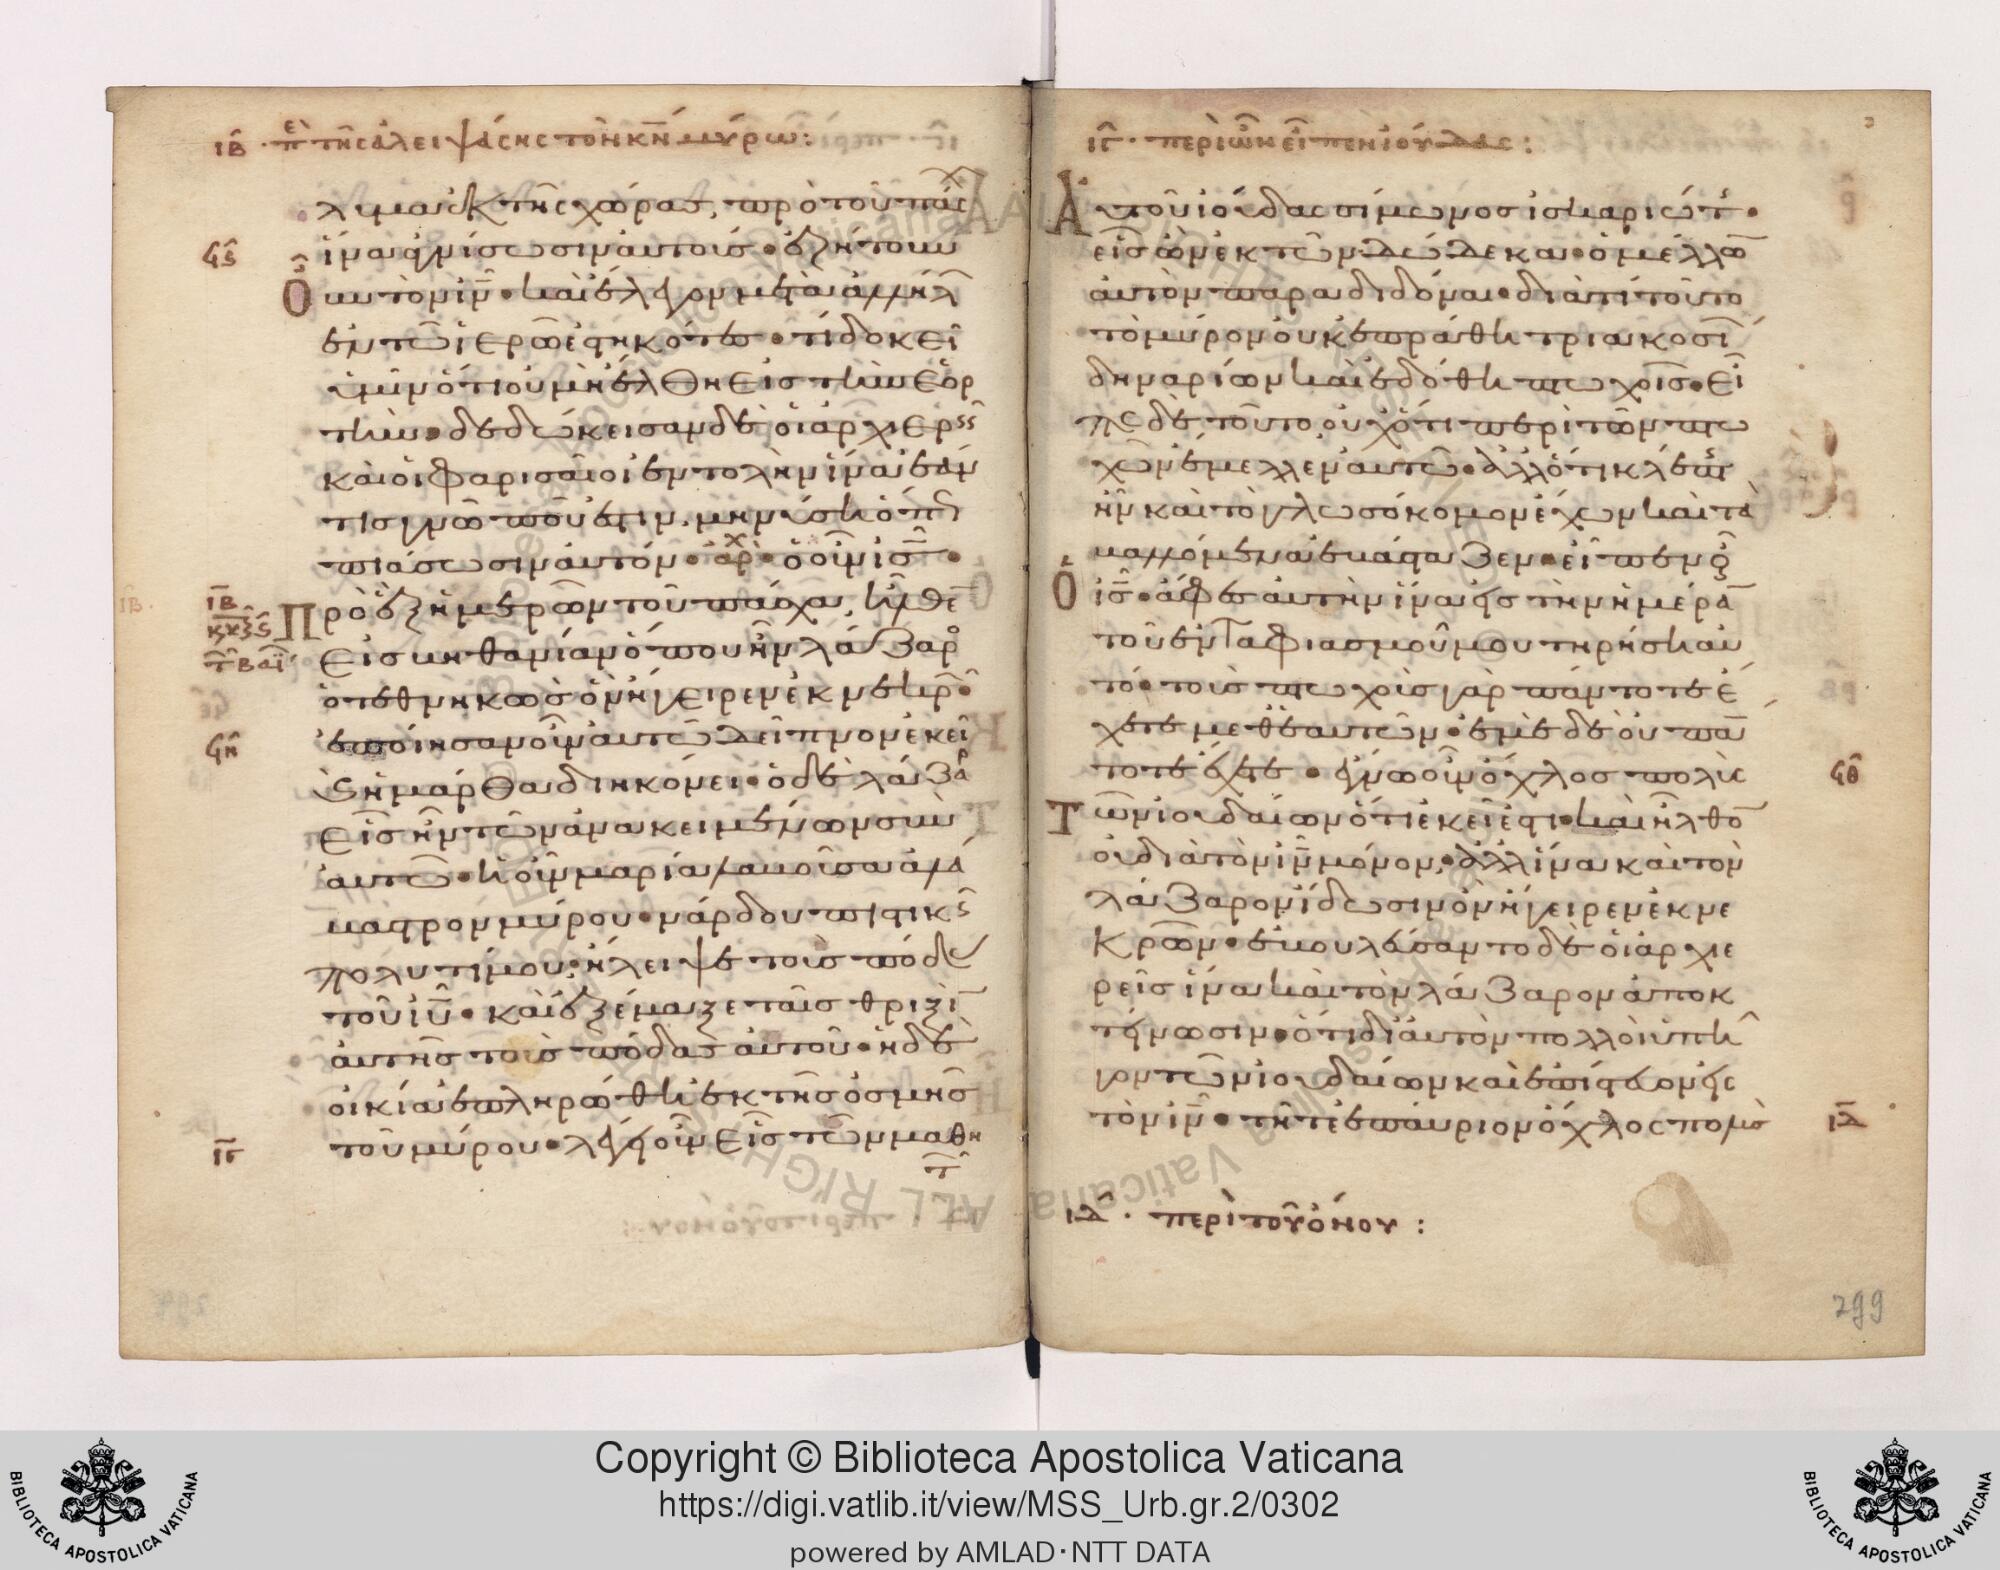 ιβ · πε τῆς ἀλειψάσης τὸν κ̅ν̅ μύρω :
λυμα ἐκ τῆς χώρας, πρὸ τοῦ πάσχ
ἵνα ἁγνίσωσιν ἑαυτούς · ἐζήτουν
ουν τὸν ι̅ν̅ · καὶ ἔλεγον μετὰ ἀλλήλ
ἐν τῶ ἱερῶ ἑστηκότες · τί δοκεῖ
ὑμῖν ὅτι οὐ μὴ ἔλθη εἰς τὴν ἑορ
τήν · δεδώκεισαν δὲ οἱ ἀρχιερεῖς
καὶ οἱ φαρισαῖοι ἐντολὴν ἵνα ἐάν
τις γνῶ ποῦ ἐστιν, μηνύση ὅπως
πιάσωσιν αὐτόν · ἀρχ · ὁ οὖν ι̅ς̅ ·
Πρὸ ἓξ ἡμερῶν τοῦ πάσχα, ἦλθεν
εἰς βηθανίαν ὅπου ἦν λάζαρο
ὁ τεθνηκὼς ὃν ἤγειρεν ἐκ νεκρ ·
ἐποίησαν οὖν αὐτῶ δεῖπνον ἐκεῖ
καὶ ἡ μάρθα διηκόνει · ὁ δὲ λάζαρ
εἷς ἦν τῶν ἀνακειμένων σὺν
αὐτῶ · ἡ οὖν μαρία λαβοῦσα ἀλά
βαστρον μύρου · νάρδου πιστικῆς
πολυτίμου · ἤλειψε τοὺς πόδας
τοῦ ι̅υ̅ · καὶ ἐξέμαξε ταῖς θριξὶ
αὐτῆς τοὺς πόδας αὐτοῦ · ἡ δὲ
οἰκία ἐπληρώθη ἐκ τῆς ὀσμῆς
τοῦ μύρου · λέγει οὖν εἷς τῶν μαθη
ιγ · περὶ ὧν εἶπεν ἰούδας :
αὐτοῦ ἰούδας σίμωνος ἰσκαριώτ ·
εἷς ὢν ἐκ τῶν δώδεκα · ὁ μέλλω
αὐτὸν παραδιδόναι · διὰ τί τοῦτο
τὸ μύρον οὐκ ἐπράθη τριακοσί
δηναρίων καὶ ἐδόθη πτωχοῖς · εἶ
πε δὲ τοῦτο, οὐχ ὅτι περὶ τῶν πτω
χῶν ἔμελλεν αὐτῶ · ἀλλ ὅτι κλέπτ
ἦν καὶ τὸ γλωσόκομον ἔχων καὶ τὰ
βαλλόμενα ἐβάσταζεν · εἶπεν οὖν
ὁ ι̅ς̅ · ἄφες αὐτὴν ἵνα εἰς τὴν ἡμέρα
τοῦ ἐνταφιασμοῦ μου τηρήση αὐ
τό · τοὺς πτωχοὺς γὰρ πάντοτε ἔ
χετε μεθ ἑαυτῶν · ἐμὲ δὲ οὐ πάν
τοτε ἔχετε · ἔγνω οὖν ὄχλος πολὺς
Τῶν ἰουδαίων ὅτι ἐκεῖ ἐστι · καὶ ἦλθο
οὐ διὰ τὸν ι̅ν̅ μόνον, · ἀλλ ἵνα καὶ τὸν
λάζαρον ἴδωσιν ὃν ἤγειρεν ἐκ νε
κρῶν · ἐβουλεύσαντο δὲ οἱ ἀρχιε
ρεῖς ἵνα καὶ τὸν λάζαρον ἀποκ
τείνωσιν · ὅτι δι αὐτὸν πολλοὶ ὑπῆ
γον τῶν ἰουδαίων καὶ ἐπίστευον εἰς
τὸν ι̅ν̅ · τῆ τε ἐπαύριον ὄχλος πολὺς
ιδ · περὶ τοῦ ὄνου :
299
Copyright © Biblioteca Apostolica Vaticana
https://digi.vatlib.it/view/MSS_Urb.gr.2/0302
powered by AMLAD·NTT DATA
BIBLIOTECA APOSTOLICA VATICANA
BIBLIOTECA APOSTOLICA VATICANA